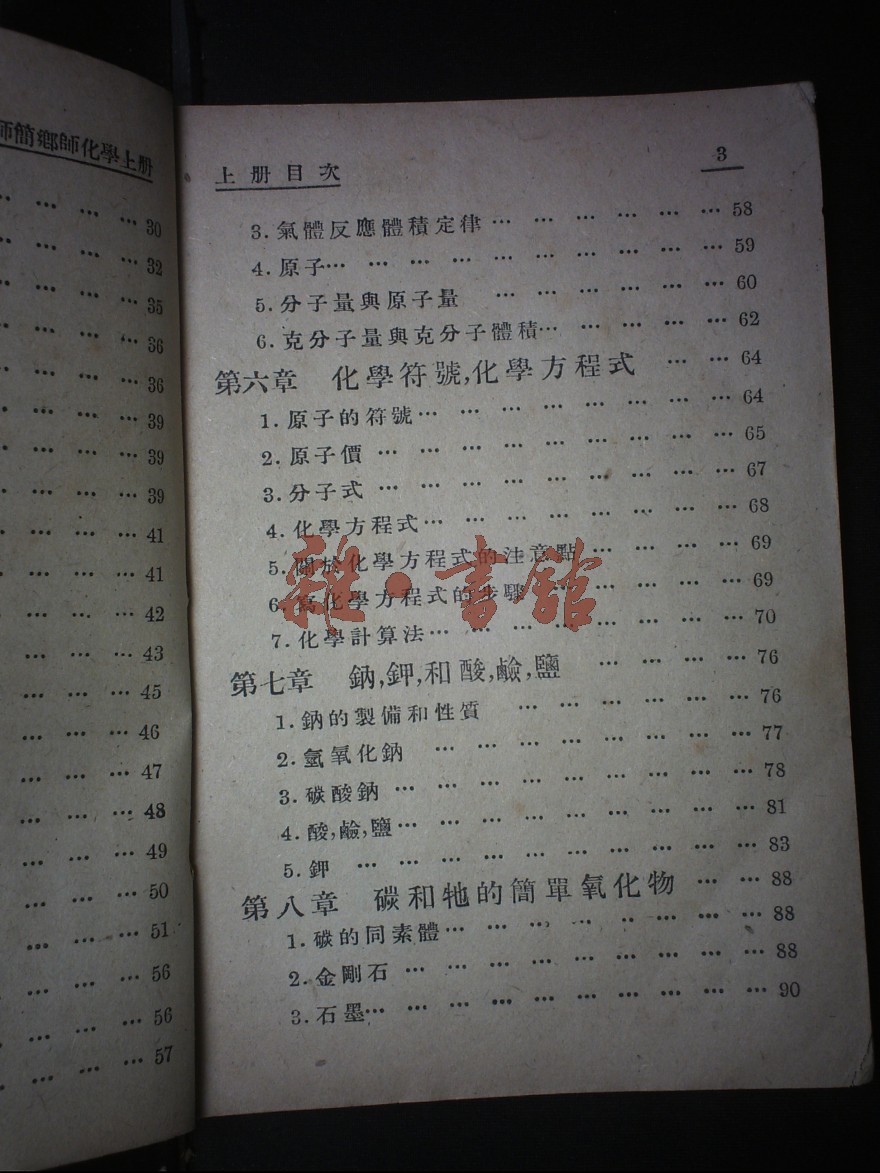 師簡鄉師化學上册
… … … … 30
… … … … 32
… … … … 35
… … … … 36
… … … … 36
… … … … 39
… … … … 39
… … … … 39
… … … … 41
… … … … 41
… … … … 42
… … … … 43
… … … … 45
… … … 46
… … … 47
… … … 48
… … … 49
… … … 50
… … … 51
… … … … 56
… … … … 56
… … … … 57
上册目次 3
3. 氣體反應體積定律 … … … … … … 58
4. 原子… … … … … … … … … … 59
5. 分子量與原子量 … … … … … … 60
6. 克分子量與克分子體積… … … … … 62
第六章 化學符號,化學方程式 … … 64
1. 原子的符號… … … … … … … … 64
2. 原子價 … … … … … … … … … 65
3. 分子式 … … … … … … … … … 67
4. 化學方程式… … … … … … … … 68
5. 關於化學方程式的注意點 … … … … 69
6. 寫化學方程式的步驟 … … … … … 69
7. 化學計算法… … … … … … … … 70
第七章 鈉,鉀,和酸,鹼,鹽 … … … … 76
1. 鈉的製備和性質 … … … … … … 76
2. 氫氧化鈉 … … … … … … … … 77
3. 碳酸鈉 … … … … … … … … … 78
4. 酸,鹼,鹽… … … … … … … … … 81
5. 鉀 … … … … … … … … … … 83
第八章 碳和牠的簡單氧化物 … … 88
1. 碳的同素體… … … … … … … … 88
2. 金剛石 … … … … … … … … … 88
3. 石墨… … … … … … … … … … 90
雜·書館